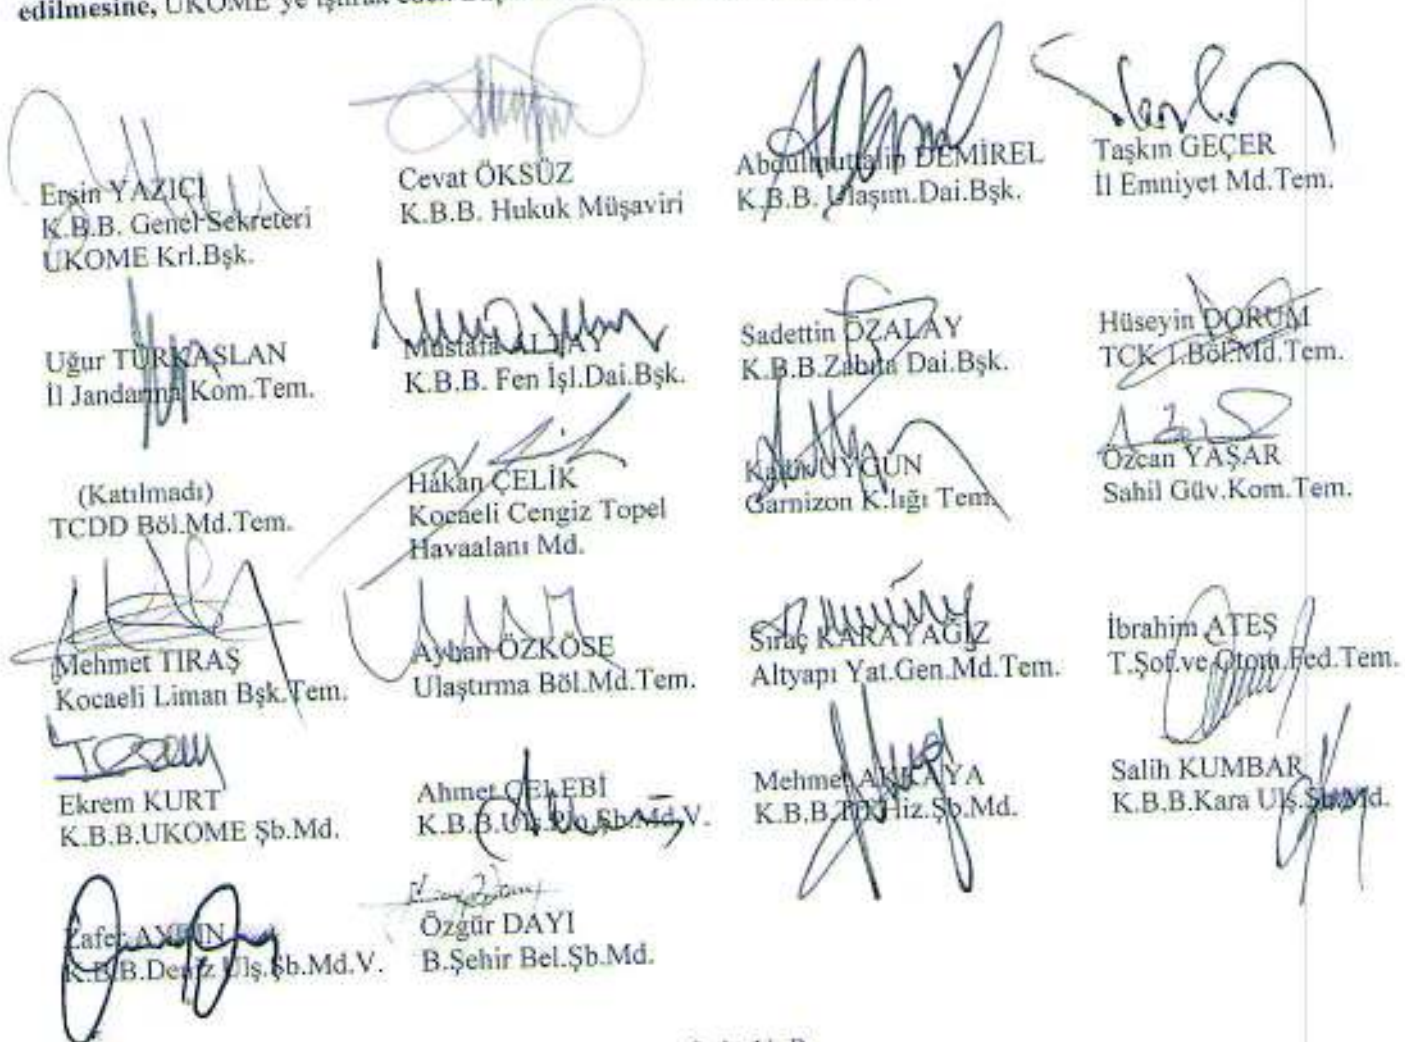 edilmesine, UKOME'ye iştirak eden
Ersin YAZICI
K.B.B. Genel Sekreteri
UKOME Krl.Bşk.
Cevat ÖKSÜZ
K.B.B. Hukuk Müşaviri
Abdulmuttalip DEMİREL
K.B.B. Ulaşım.Dai.Bşk.
Taşkın GEÇER
İl Emniyet Md.Tem.
Uğur TÜRKASLAN
İl Jandarma Kom.Tem.
Mustafa ALTAY
K.B.B. Fen İşl.Dai.Bşk.
Sadettin ÖZALAY
K.B.B.Zabıta Dai.Bşk.
Hüseyin DORUM
TCK 1.Böl.Md.Tem.
(Katılmadı)
TCDD Böl.Md.Tem.
Hakan ÇELİK
Kocaeli Cengiz Topel
Havaalanı Md.
UYGUN
Garnizon K.lığı Tem.
Özcan YAŞAR
Sahil Güv.Kom.Tem.
Mehmet TIRAŞ
Kocaeli Liman Bşk.Tem.
Ayhan ÖZKÖSE
Ulaştırma Böl.Md.Tem.
Siraç KARAYAĞIZ
Altyapı Yat.Gen.Md.Tem.
İbrahim ATEŞ
T.Şof.ve Otom.Fed.Tem.
Ekrem KURT
K.B.B.UKOME Şb.Md.
Ahmet ÇELEBİ
K.B.B.Ulş.Pln.Şb.Md.V.
Mehmet AKKAYA
K.B.B. Hiz.Şb.Md.
Salih KUMBAR
K.B.B.Kara Ulş.Şb.Md.
Zafer AYDIN
K.B.B.Deniz Ulş.Şb.Md.V.
Özgür DAYI
B.Şehir Bel.Şb.Md.